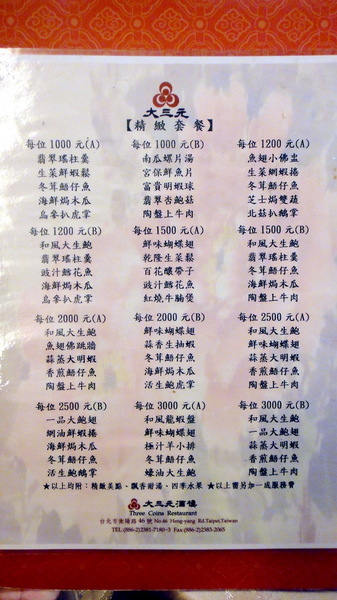 大三元
【精緻套餐】
每位 1000 元(A)
翡翠瑤柱羹
生菜鮮蝦鬆
冬茸䱽仔魚
海鮮焗木瓜
烏參扒虎掌
每位 1000 元(B)
南瓜螺片湯
宮保鮮魚片
富貴明蝦球
翡翠杏鮑菇
陶盤上牛肉
每位 1200 元(A)
魚翅小佛盅
生菜網蝦捲
冬茸䱽仔魚
芝士焗雙蔬
北菇扒鵝掌
每位 1200 元(B)
和風大生鮑
翡翠瑤柱羹
豉汁鱈花魚
海鮮焗木瓜
烏參扒虎掌
每位 1500 元(A)
鮮味蝴蝶翅
乾隆生菜鬆
百花釀帶子
豉汁鱈花魚
紅燒牛腩煲
每位 1500 元(B)
和風大生鮑
翡翠瑤柱羹
冬茸䱽仔魚
海鮮焗木瓜
陶盤上牛肉
每位 2000 元(A)
和風大生鮑
魚翅佛跳牆
蒜茸大明蝦
香煎䱽仔魚
陶盤上牛肉
每位 2000 元(B)
鮮味蝴蝶翅
蒜香生抽蝦
冬茸䱽仔魚
海鮮焗木瓜
活生鮑虎掌
每位 2500 元(A)
和風大生鮑
鮮味蝴蝶翅
蒜蒸大明蝦
香煎䱽仔魚
陶盤上牛肉
每位 2500 元(B)
一品大鮑翅
網油鮮蝦捲
海鮮焗木瓜
冬茸䱽仔魚
活生鮑鵝掌
每位 3000 元(A)
和風龍蝦盤
鮮味蝴蝶翅
極汁羊小排
冬茸䱽仔魚
蠔油大生鮑
每位 3000 元(B)
和風大生鮑
一品大鮑翅
蒜茸明蝦
香煎䱽仔魚
陶盤上牛肉
★以上均附：精緻美點、飄香甜湯、四季水果 ★以上需另加一成服務費
大三元酒樓
Three Coins Restaurant
台北市衡陽路 46 號 No.46 Heng-yang Rd.Taipei,Taiwan
TEL:(886-2)2381-7180~3 Fax:(886-2)2383-2065